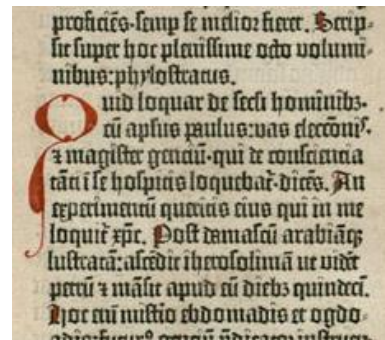 proficiēs·semp se melior fieret. Scrip-
sit super hoc plenissime octo volumi-
nibus: phylostratus.
Quid loquar de secli hominibꝫ·
cū aplus paulus: vas eleccōnis·
⁊ magister genciū· qui de consciencia
tāti ī se hospitis loquebaꝉ· dicēs. An
experimentū queritis eius qui in me
loquiꝉ xp̄c. Post damascū arabiāqꝫ
lustratā: ascēdit iherosolimā ut vidēt
petrū ⁊ māsit apud eū diebꝫ quindecī.
Hoc enī mistio ebdomadis et ogdo-